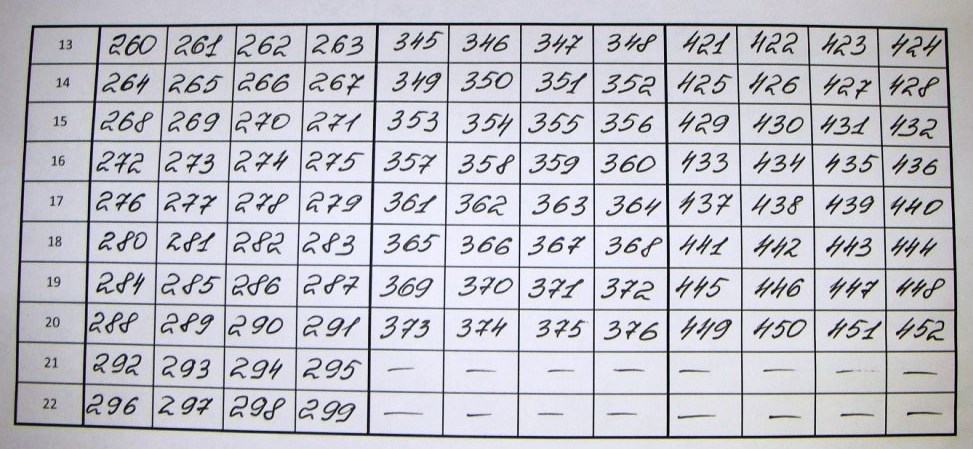 13 260 261 262 263 345 346 347 348 421 422 423 424
14 264 265 266 267 349 350 351 352 425 426 427 428
15 268 269 270 271 353 354 355 356 429 430 431 432
16 272 273 274 275 357 358 359 360 433 434 435 436
17 276 277 278 279 361 362 363 364 437 438 439 440
18 280 281 282 283 365 366 367 368 441 442 443 444
19 284 285 286 287 369 370 371 372 445 446 447 448
20 288 289 290 291 373 374 375 376 449 450 451 452
21 292 293 294 295 — — — — — — — —
22 296 297 298 299 — — — — — — — —